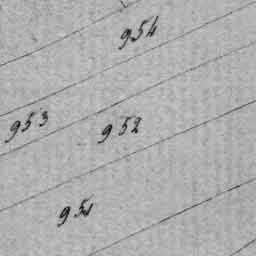 954
953
952
951